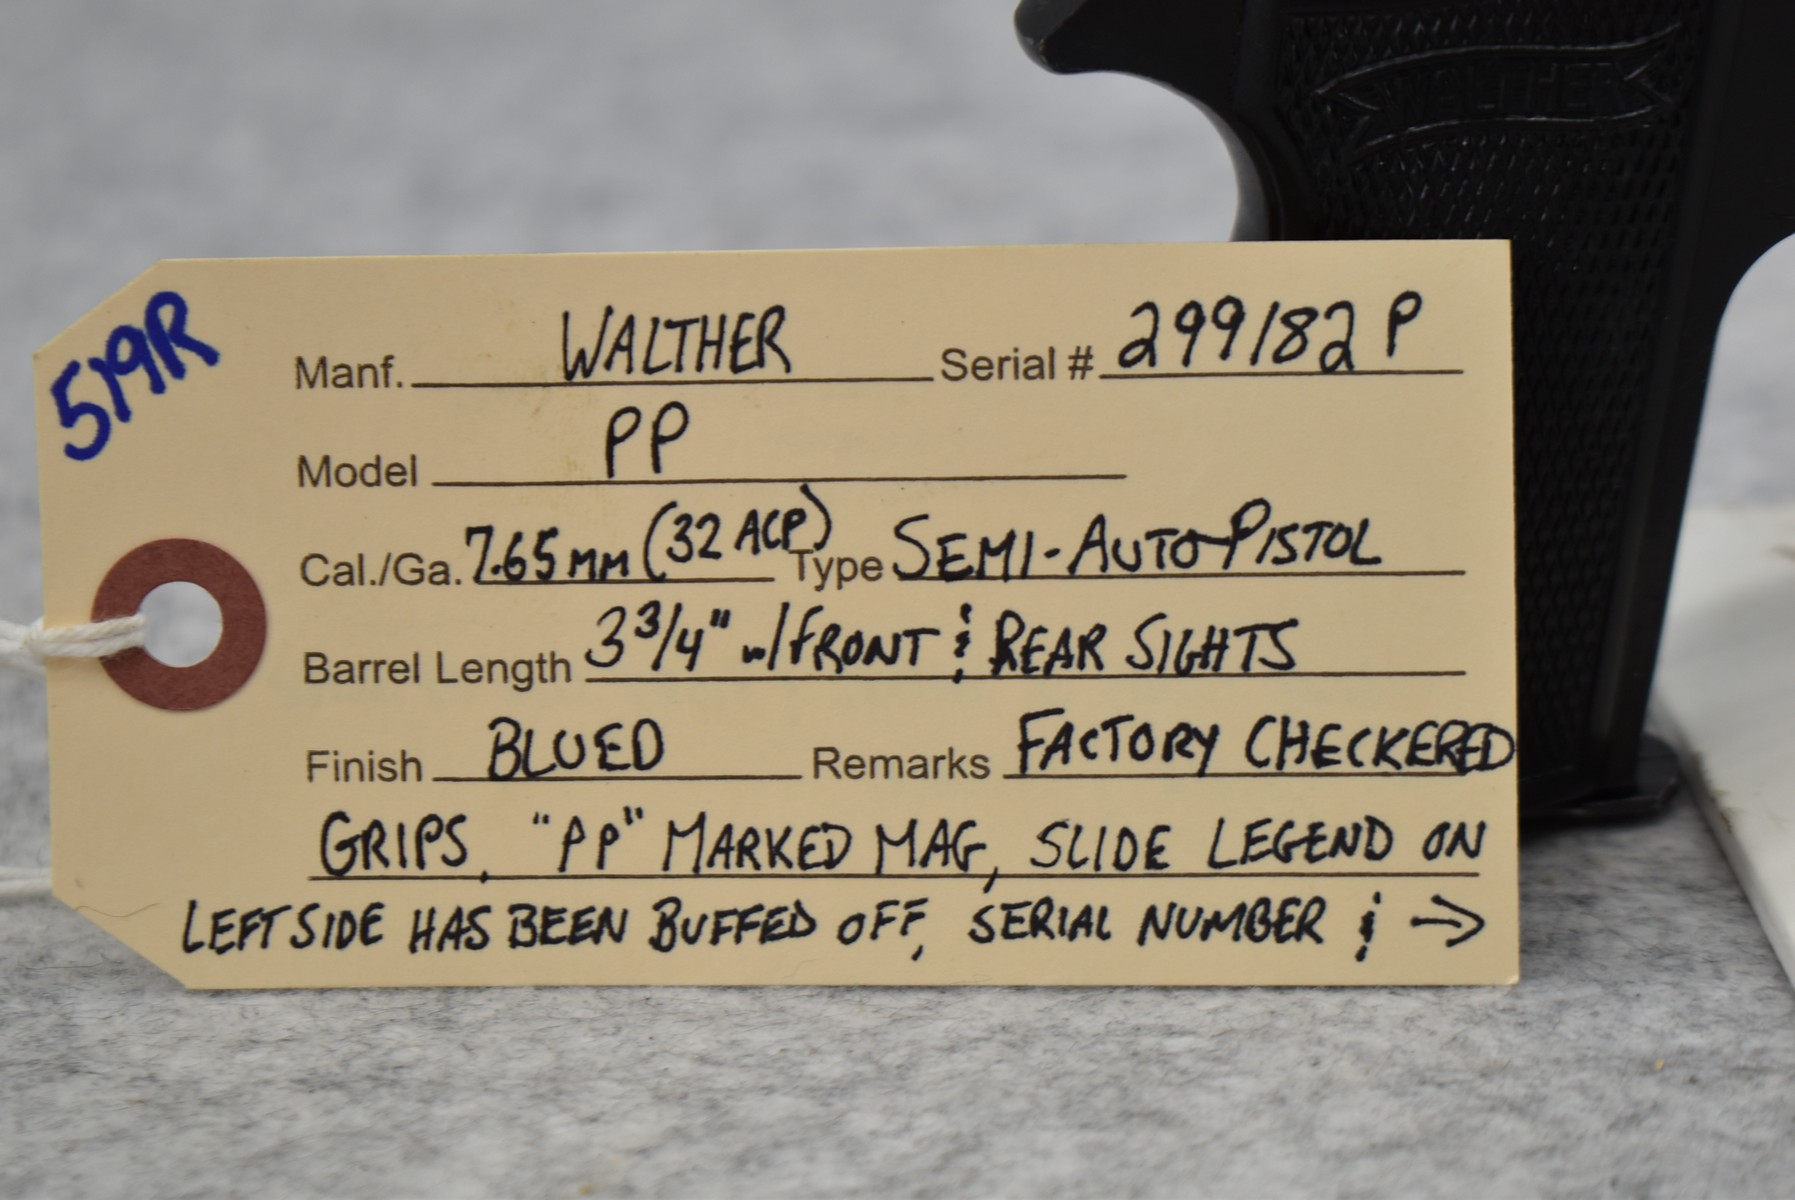 WALTHER
519R
Manf. WALTHER Serial # 299182 P
Model PP
Cal./Ga. 7.65MM (32 ACP) Type SEMI-AUTO PISTOL
Barrel Length 3 3/4" w/FRONT & REAR SIGHTS
Finish BLUED Remarks FACTORY CHECKERED
GRIPS, "PP" MARKED MAG, SLIDE LEGEND ON
LEFT SIDE HAS BEEN BUFFED OFF, SERIAL NUMBER & →